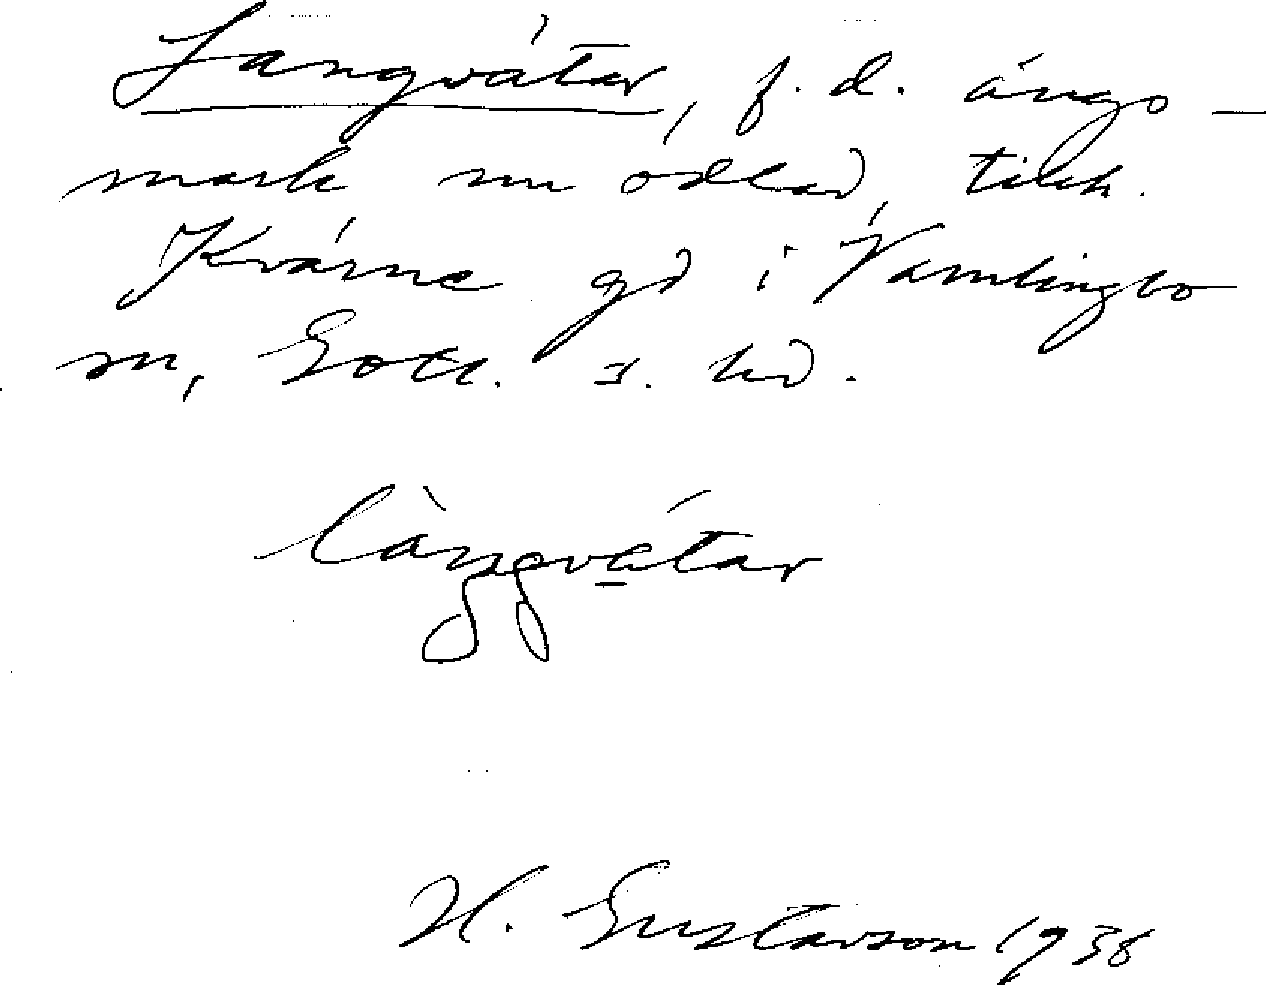 Langvätar, f. d. ängs-
mark nu odlad, tillh.
Kvärne gd i Vamlingbo
sn, Gotl. s. hd.
làŋgvátar
H. Gustavson 1938